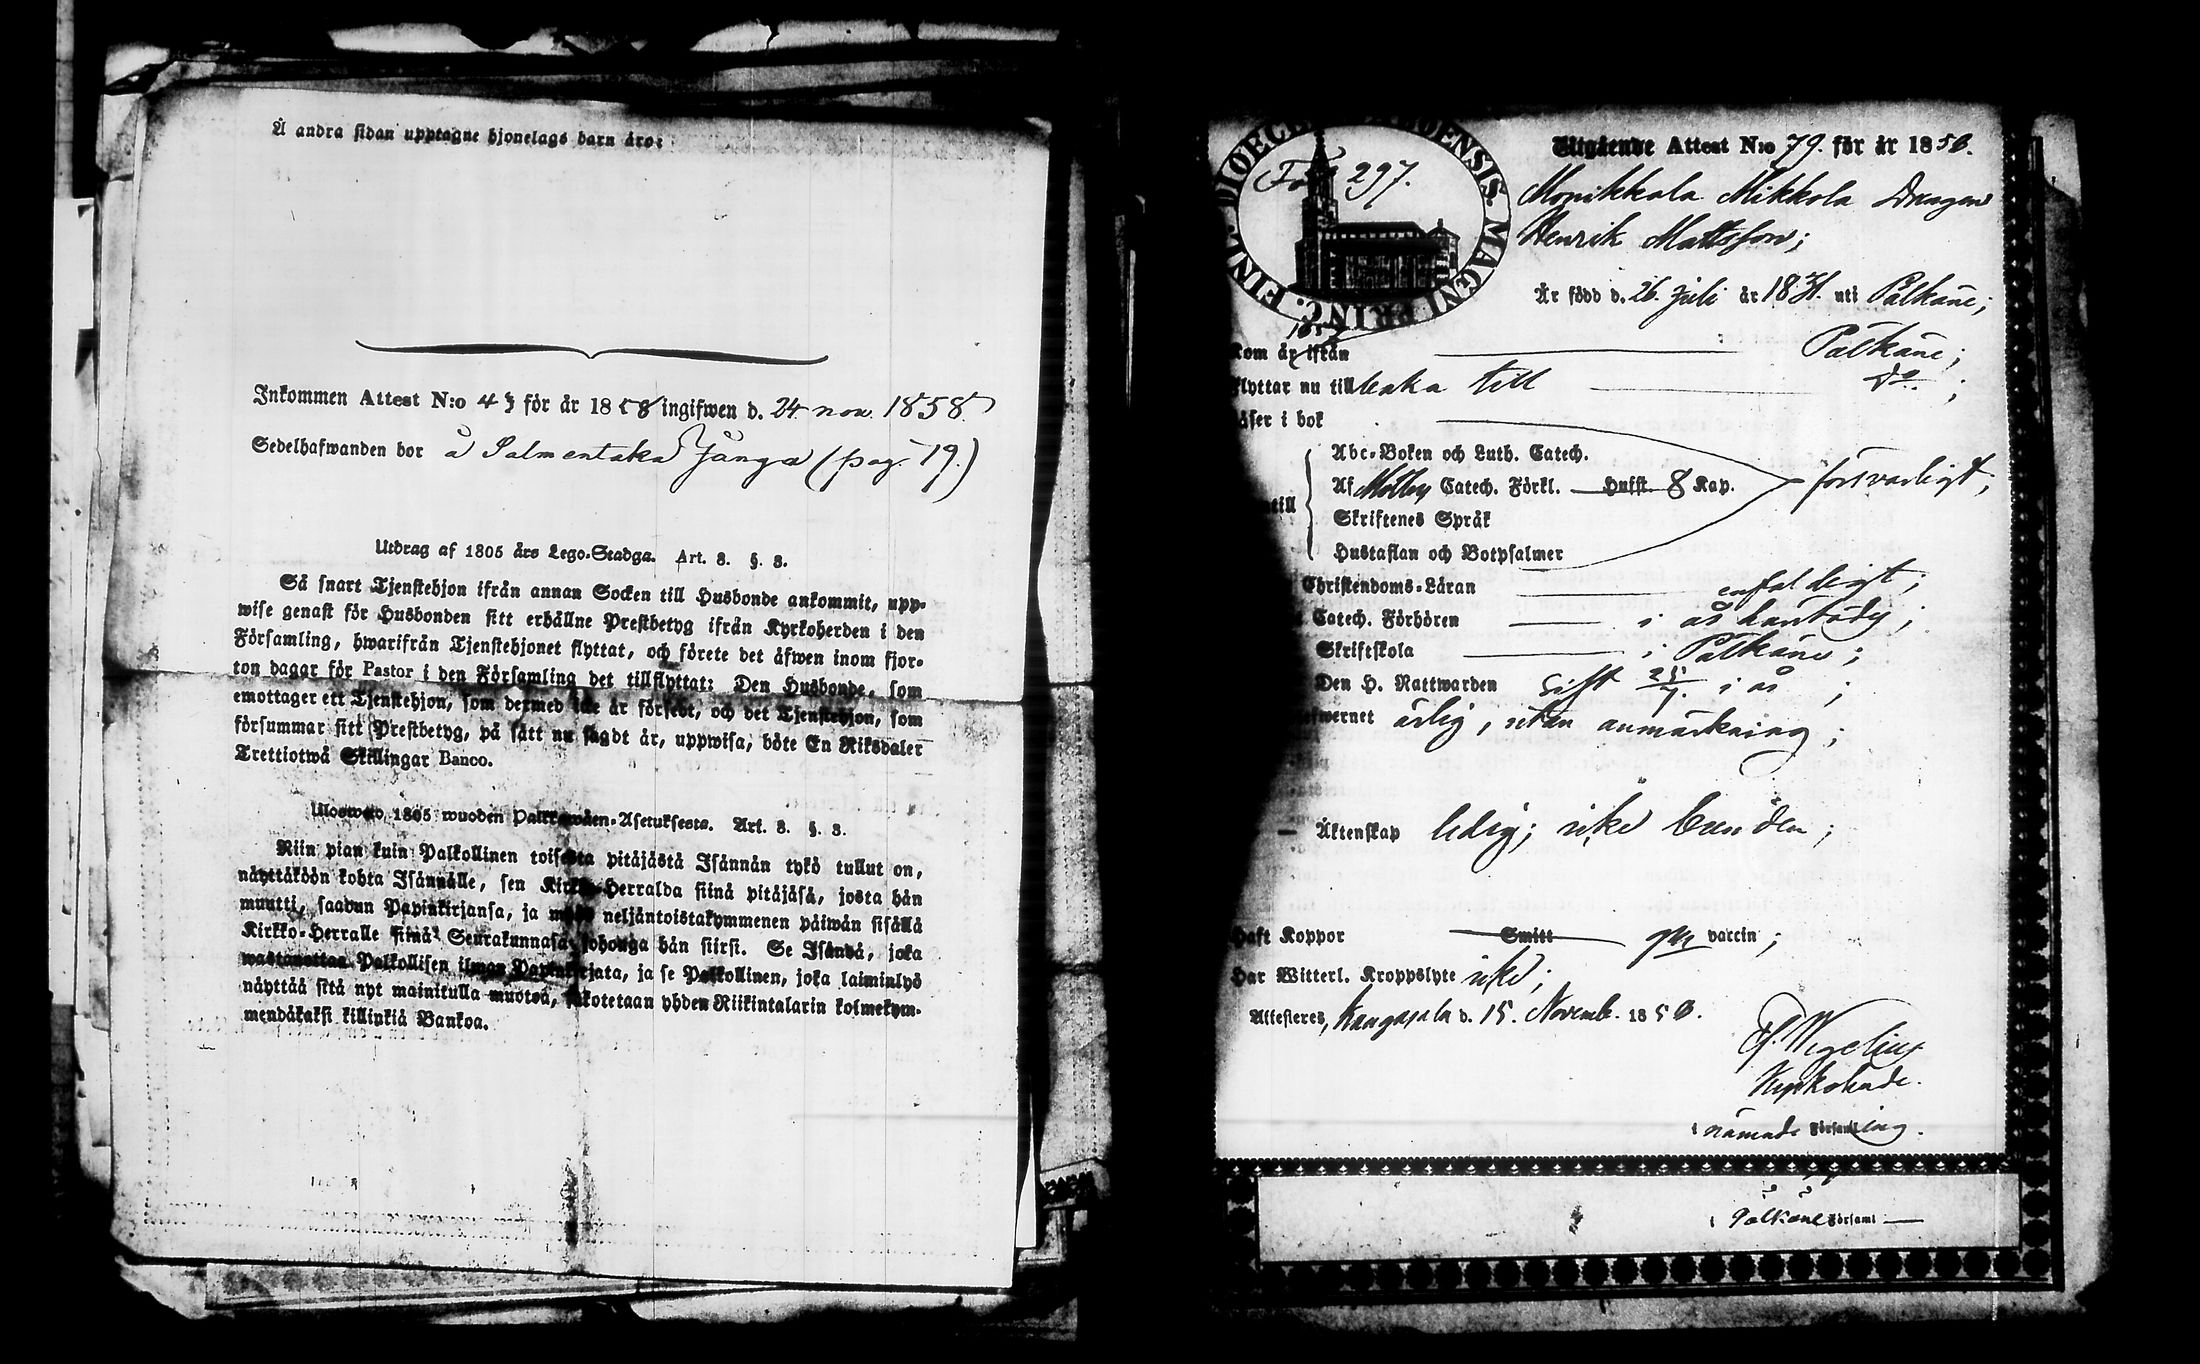 Å andra sidan upptagne hjonelags barn äro:
Inkommen Attest N:o 43 för år 1858 ingifwen d. 24 nov. 1858
Sedelhafwanden bor å Salmentaka Jånga (pag. 79.)
Utdrag af 1805 års Lego-Stadga. Art. 3. §. 3.
Så snart Tjenstehjon ifrån annan Socken till Husbonde ankommit, upp-
wise genast för Husbonden sitt erhållne Prestbetyg ifrån Kyrkoherden i den
Församling, hwarifrån Tjenstehjonet flyttat, och förete det äfwen inom fjor-
ton dagar för Pastor i den Församling det tillflyttat: Den Husbonde, som
emottager ett Tjenstehjon, som dermed icke är försedt, och det Tjenstehjon, som
försummar sitt Prestbetyg, på sätt nu sagdt är, uppwisa, böte En Riksdaler
Trettiotwå Skillingar Banco.
Ulosweto 1805 wuoden Palkkawäen-Asetuksesta. Art. 3. §. 3.
Niin pian kuin Palkollinen toisesta pitäjästä Isännän tykö tullut on,
näyttäköön kohta Isännälle, sen Kirkko-Herralda siinä pitäjäsä, josta hän
muutti, saadun Papinkirjansa, ja myös neljäntoistakymmenen päiwän sisällä
Kirkko-Herralle siinä Seurakunnasa, johonga hän siirsi. Se Isändä, joka
wastanottaa Palkollisen ilman Papinkirjata, ja se Palkollinen, joka laiminlyö
näyttää sitä nyt mainitulla muotoa, sakotetaan yhden Riikintalarin kolmekym-
mendäkaksi killinkiä Bankoa.
DIOEC. ABOENSIS. MAGNI PRINC. FINL.
Fol. 297.
Utgående Attest N:o 79. för år 1858.
Monikkala Mikkola Drängen
Henrik Mattsson;
Är född d. 26. Juli år 1831. uti Pälkäne;
Kom år ifrån Pälkäne;
flyttar nu tillbaka till do.;
läser i bok
Abc-Boken och Luth. Catech.
Af Catech. Förkl. Hufst. 8 Kap. försvarligt;
Skriftenes Språk
Hustaflan och Botpsalmer
Christendoms-Läran enfaldigt;
Catech. Förhören i
Skriftskola i Pälkäne;
Den H. Nattwarden sist 25/7. i år;
ärlig, utan anmärkning;
Äktenskap ledig; icke bunden;
Haft Koppor Smitt gm vaccin;
Har Witterl. Kroppslyte icke;
Attesteras, Kangasala d. 15. Novemb. 1858.
Wegelius
Kyrkoherde.
i nämnde Församling.
i Pälkäne Församl